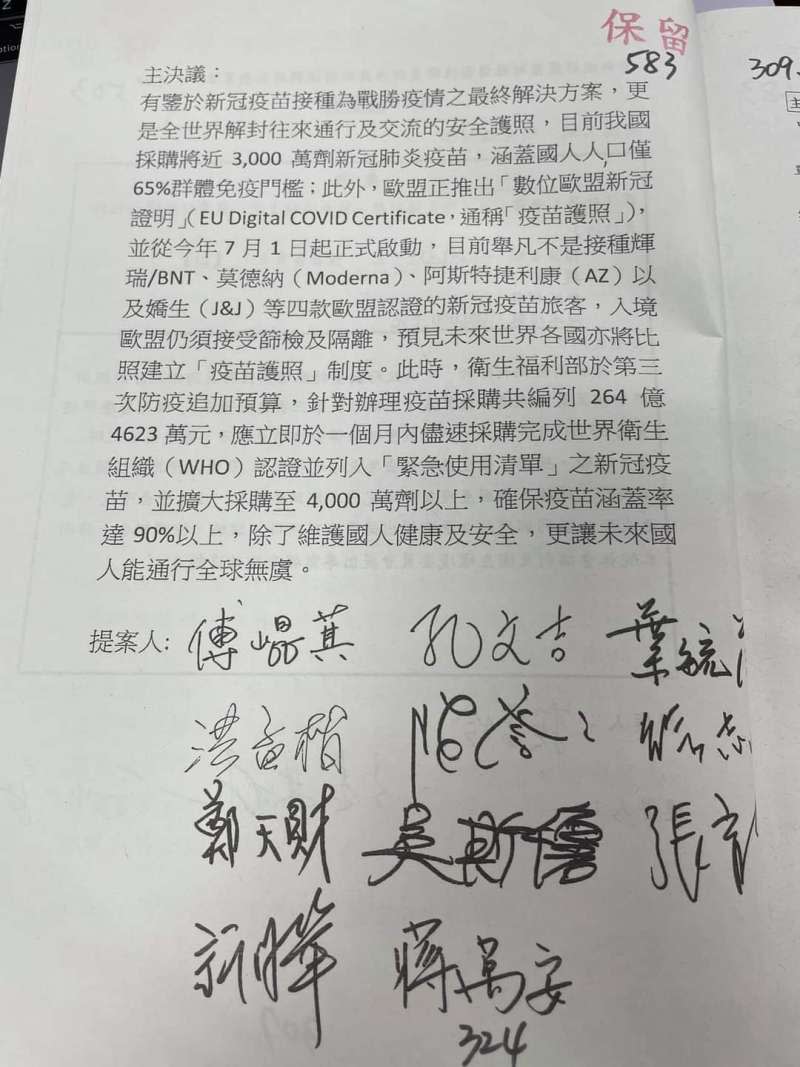 保留
583
309
主決議：
有鑒於新冠疫苗接種為戰勝疫情之最終解決方案，更
是全世界解封往來通行及交流的安全護照，目前我國
採購將近 3,000 萬劑新冠肺炎疫苗，涵蓋國人人口僅
65%群體免疫門檻；此外，歐盟正推出「數位歐盟新冠
證明」（EU Digital COVID Certificate，通稱「疫苗護照」），
並從今年 7 月 1 日起正式啟動，目前舉凡不是接種輝
瑞/BNT、莫德納（Moderna）、阿斯特捷利康（AZ）以
及嬌生（J&J）等四款歐盟認證的新冠疫苗旅客，入境
歐盟仍須接受篩檢及隔離，預見未來世界各國亦將比
照建立「疫苗護照」制度。此時，衛生福利部於第三
次防疫追加預算，針對辦理疫苗採購共編列 264 億
4623 萬元，應立即於一個月內儘速採購完成世界衛生
組織（WHO）認證並列入「緊急使用清單」之新冠疫
苗，並擴大採購至 4,000 萬劑以上，確保疫苗涵蓋率
達 90%以上，除了維護國人健康及安全，更讓未來國
人能通行全球無虞。
提案人: 傅崐萁 孔文吉 葉毓
洪孟楷
鄭天財 吳斯懷 張
蔣萬安
324